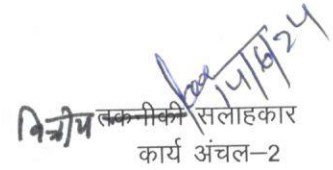 14/6/24
वित्तीय तकनीकी सलाहकार
कार्य अंचल–2